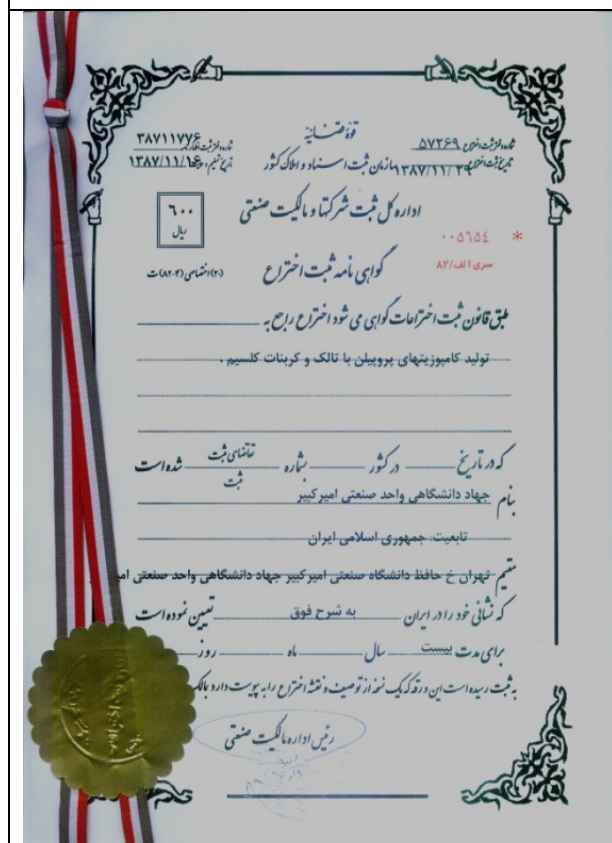 قوه قضائیه
شماره دفتر ثبت اختراع ۵۷۲۶۹
تاریخ ثبت اختراع ۱۳۸۷/۱۱/۲۹
سازمان ثبت اسناد و املاک کشور
۳۸۷۱۱۷۷۶
۱۳۸۷/۱۱/۱۶
اداره کل ثبت شرکتها و مالکیت صنعتی
۶۰۰
ریال
* ۰۰۵۶۵٤
سری الف/۸۲
گواهی نامه ثبت اختراع
(۳۰) اختصاصی (۴-۸۲) ت
طبق قانون ثبت اختراعات گواهی می شود اختراع راجع به
تولید کامپوزیتهای پروپیلن با تالک و کربنات کلسیم .
که در تاریخ در کشور بشماره تقاضای ثبت شده است
ثبت
بنام جهاد دانشگاهی واحد صنعتی امیرکبیر
تابعیت: جمهوری اسلامی ایران
مقیم تهران خ حافظ دانشگاه صنعتی امیرکبیر جهاد دانشگاهی واحد صنعتی
که نشانی خود را در ایران به شرح فوق تعیین نموده است
برای مدت بیست سال ماه روز
به ثبت رسیده است این ورقه که یک نسخه از توصیف و نقشه اختراع را به پیوست دارد
رئیس اداره مالکیت صنعتی